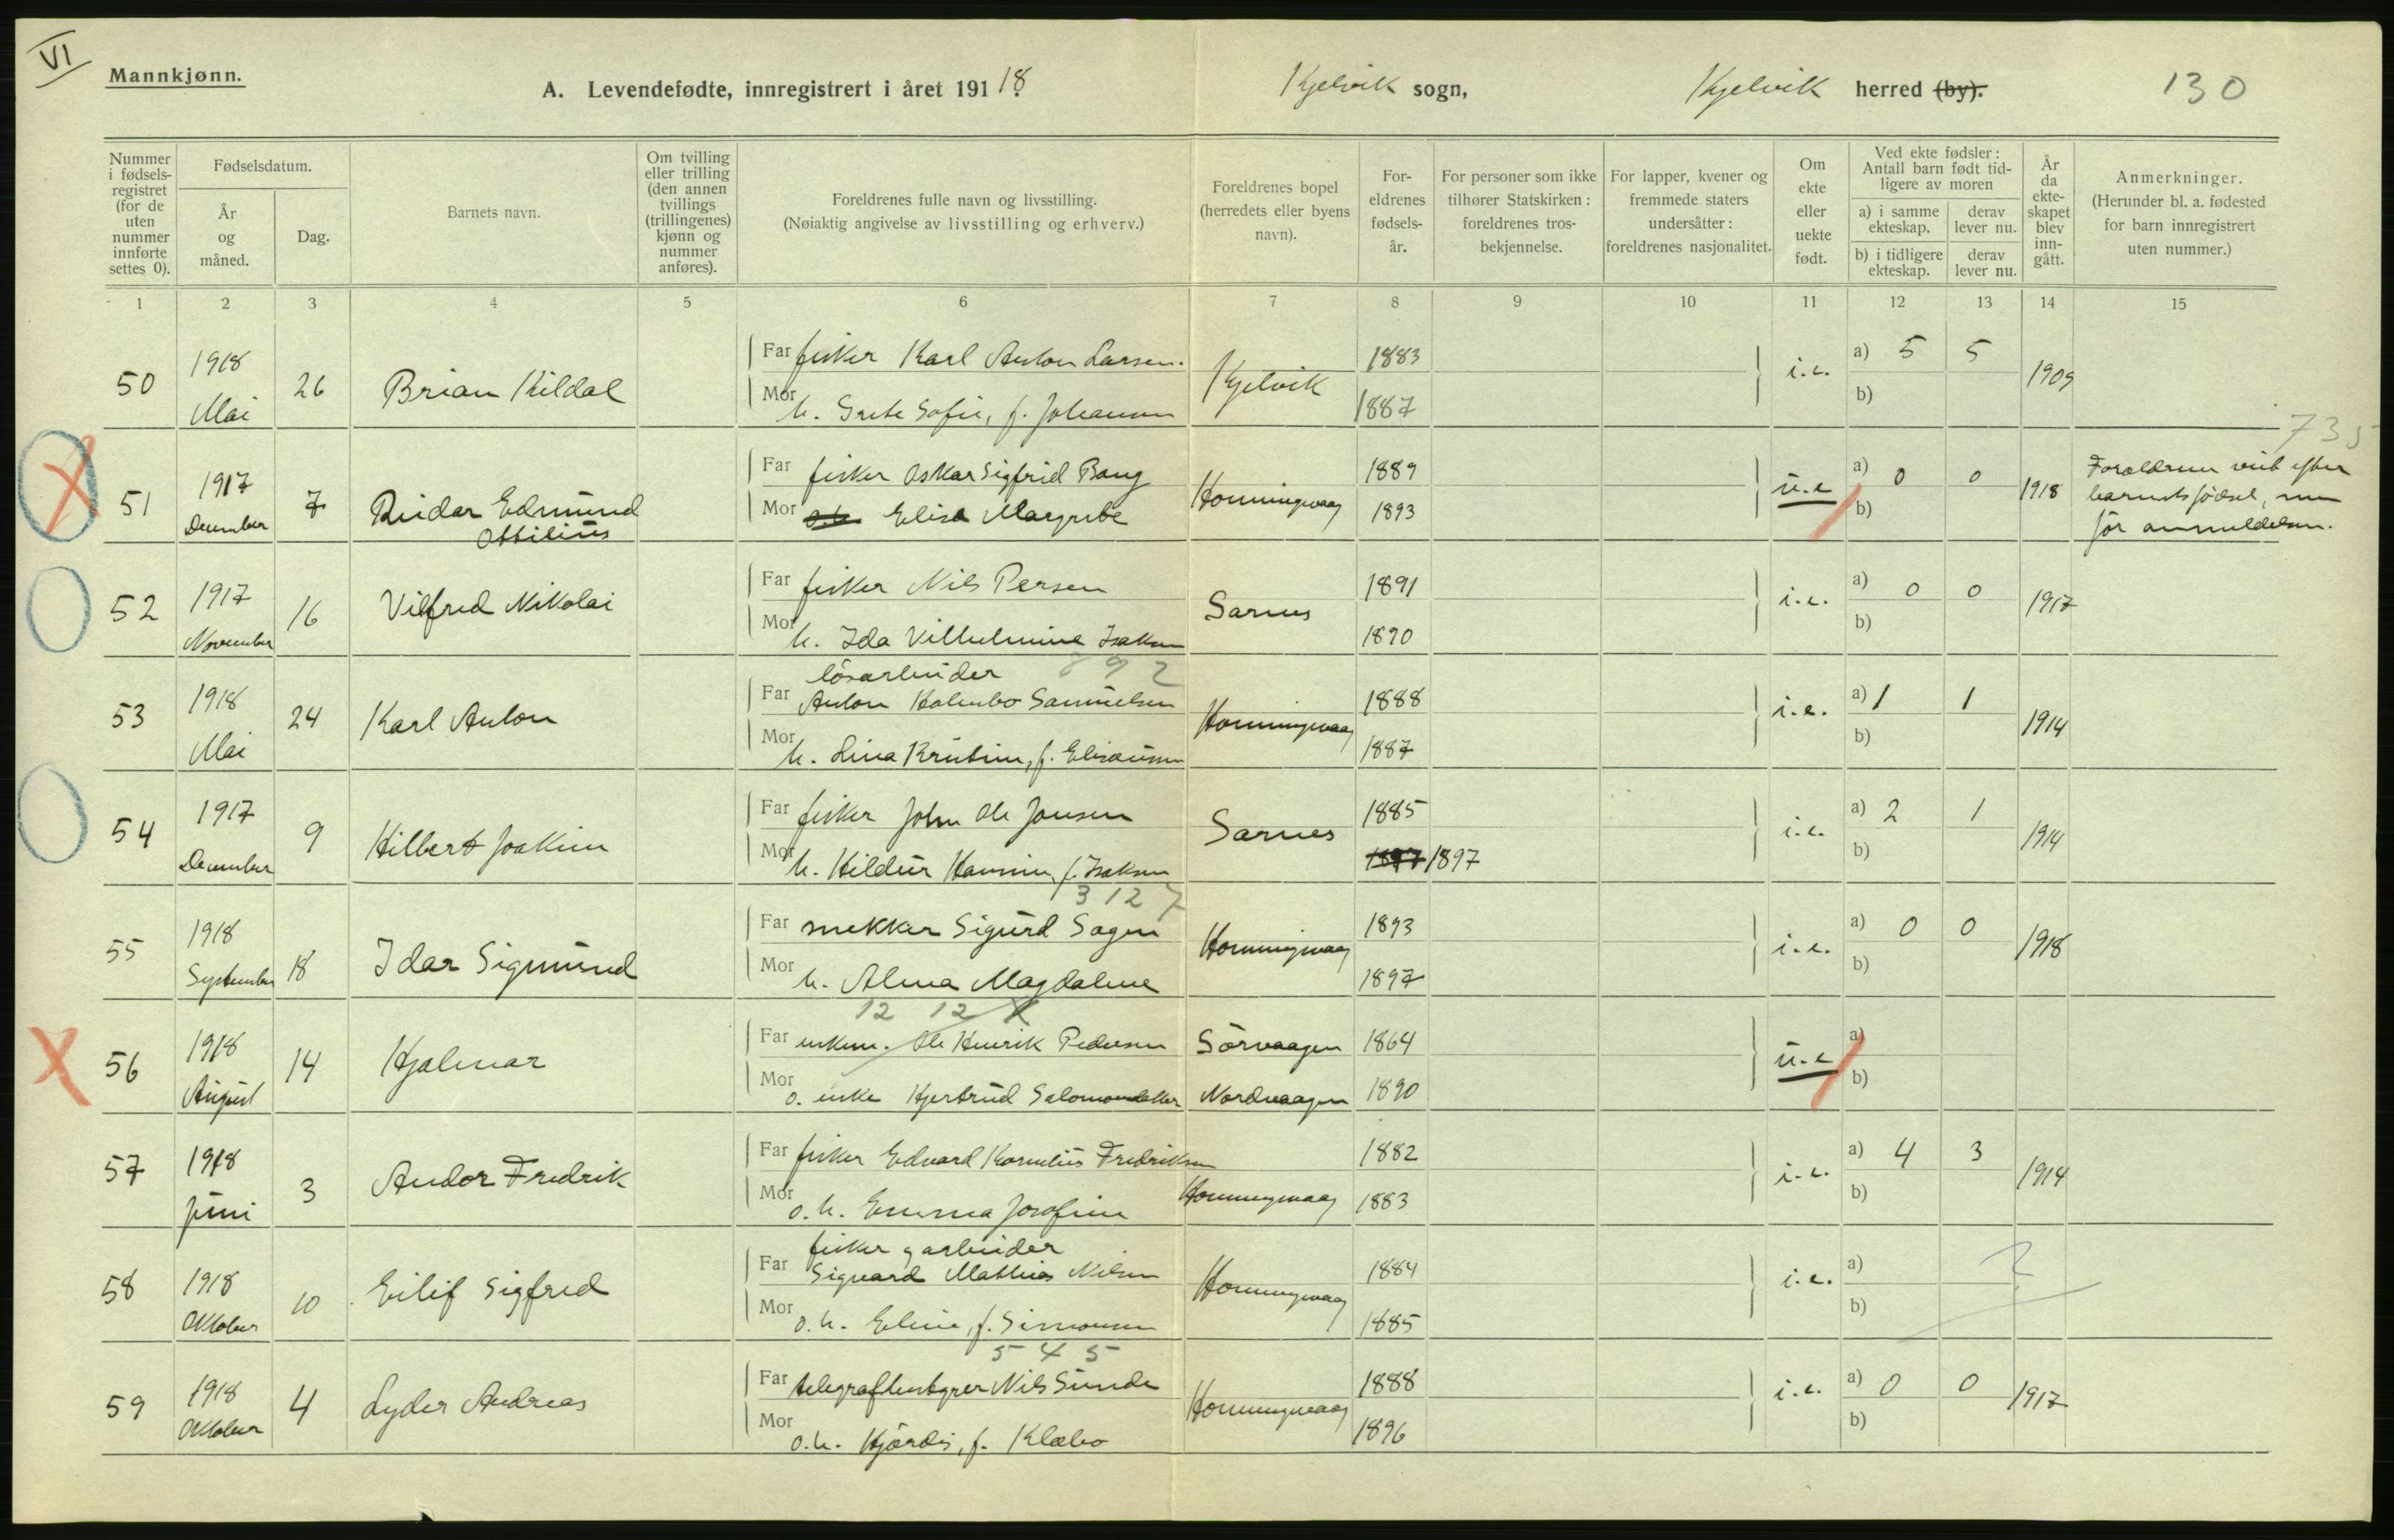 VI
Mannkjønn.
A. Levendefødte, innregistrert i året 191 18. Kjelvik sogn, Kjelvik herred (by). 130
Nummer i fødsels-registret (for de uten nummer innførte settes 0).
Fødselsdatum.
År og måned.
Dag.
Barnets navn.
Om tvilling eller trilling (den annen tvillings (trillingenes) kjønn og nummer anføres).
Foreldrenes fulle navn og livsstilling.
(Nøiaktig angivelse av livsstilling og erhverv.)
Foreldrenes bopel (herredets eller byens navn).
For-eldrenes fødsels-år.
For personer som ikke tilhører Statskirken: foreldrenes tros-bekjennelse.
For lapper, kvener og fremmede staters undersåtter: foreldrenes nasjonalitet.
Om ekte eller uekte født.
Ved ekte fødsler: Antall barn født tid-ligere av moren
a) i samme ekteskap.
derav lever nu.
b) i tidligere ekteskap.
derav lever nu.
År da ekte-skapet blev inn-gått.
Anmerkninger.
(Herunder bl. a. fødested for barn innregistrert uten nummer.)
1 2 3 4 5 6 7 8 9 10 11 12 13 14 15
50 1918 Mai 26 Brian Kildal
Far fisker Karl Anton Larsen. Kjelvik 1883 i.e. a) 5 5 1909
Mor h. Grete Sofie, f. Johansen 1887 b)
735
51 1917 December 7 Reidar Edmund Ottilius
Far fisker Oskar Sigfrid Bang Honningvaag 1889 u.e a) 0 0 1918 Foraeldrene viet efter
Mor o.h. Elisa Margrete 1893 b) barnets födsel, men
för anmeldelsen.
52 1917 November 16 Vilfred Nikolai
Far fisker Nils Persen Sarnes 1891 i.e. a) 0 0 1917
Mor h. Ida Vilhelmine Isaksen 1890 b)
892
53 1918 Mai 24 Karl Anton
lösarbeider
Far Anton Kolenbo Samuelsen Honningvaag 1888 i.e. a) 1 1 1914
Mor h. Lina Kristine, f. Eliseussen 1887 b)
54 1917 December 9 Hilbert Joakim
Far fisker John Ole Jonsen Sarnes 1885 i.e. a) 2 1 1914
Mor h. Hildur Hansine, f. Isaksen 1897 1897 b)
3127
55 1918 September 18 Idar Sigmund
Far snekker Sigurd Sagen Honningvaag 1893 i.e. a) 0 0 1918
Mor h. Alma Magdalene 1897 b)
12 12 X
56 1918 August 14 Hjalmar
Far enkem. Ole Henrik Pedersen Sörvaagen 1864 u.e a)
Mor o. enke Hjertrud Salomonsdatter Nordvaagen 1890 b)
57 1918 Juni 3 Andor Fredrik
Far fisker Edvard Kornelius Fredriksen Honningvaag 1882 i.e. a) 4 3 1914
Mor o.h. Emma Josefine 1883 b)
58 1918 Oktober 10 Eilif Sigfred
fisker g arbeider
Far Sigvard Mathias Nilsen Honningvaag 1884 i.e. a) ?
Mor o.h. Eline, f. Simonsen 1885 b)
545
59 1918 Oktober 4 Lyder Andreas
Far telegrafbestyrer Nils Sunde Honningvaag 1888 i.e. a) 0 0 1917
Mor o.h. Hjördis, f. Klæbo 1896 b)